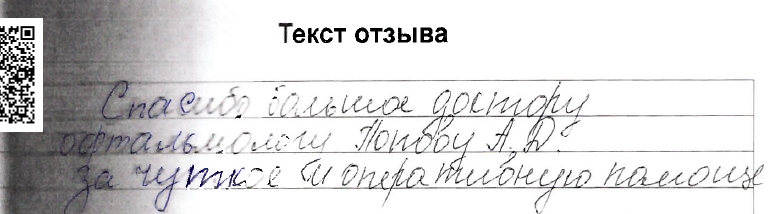 Текст отзыва
Спасибо большое доктору
офтальмологу Попову А.Д.
за чуткое и оперативную помощь